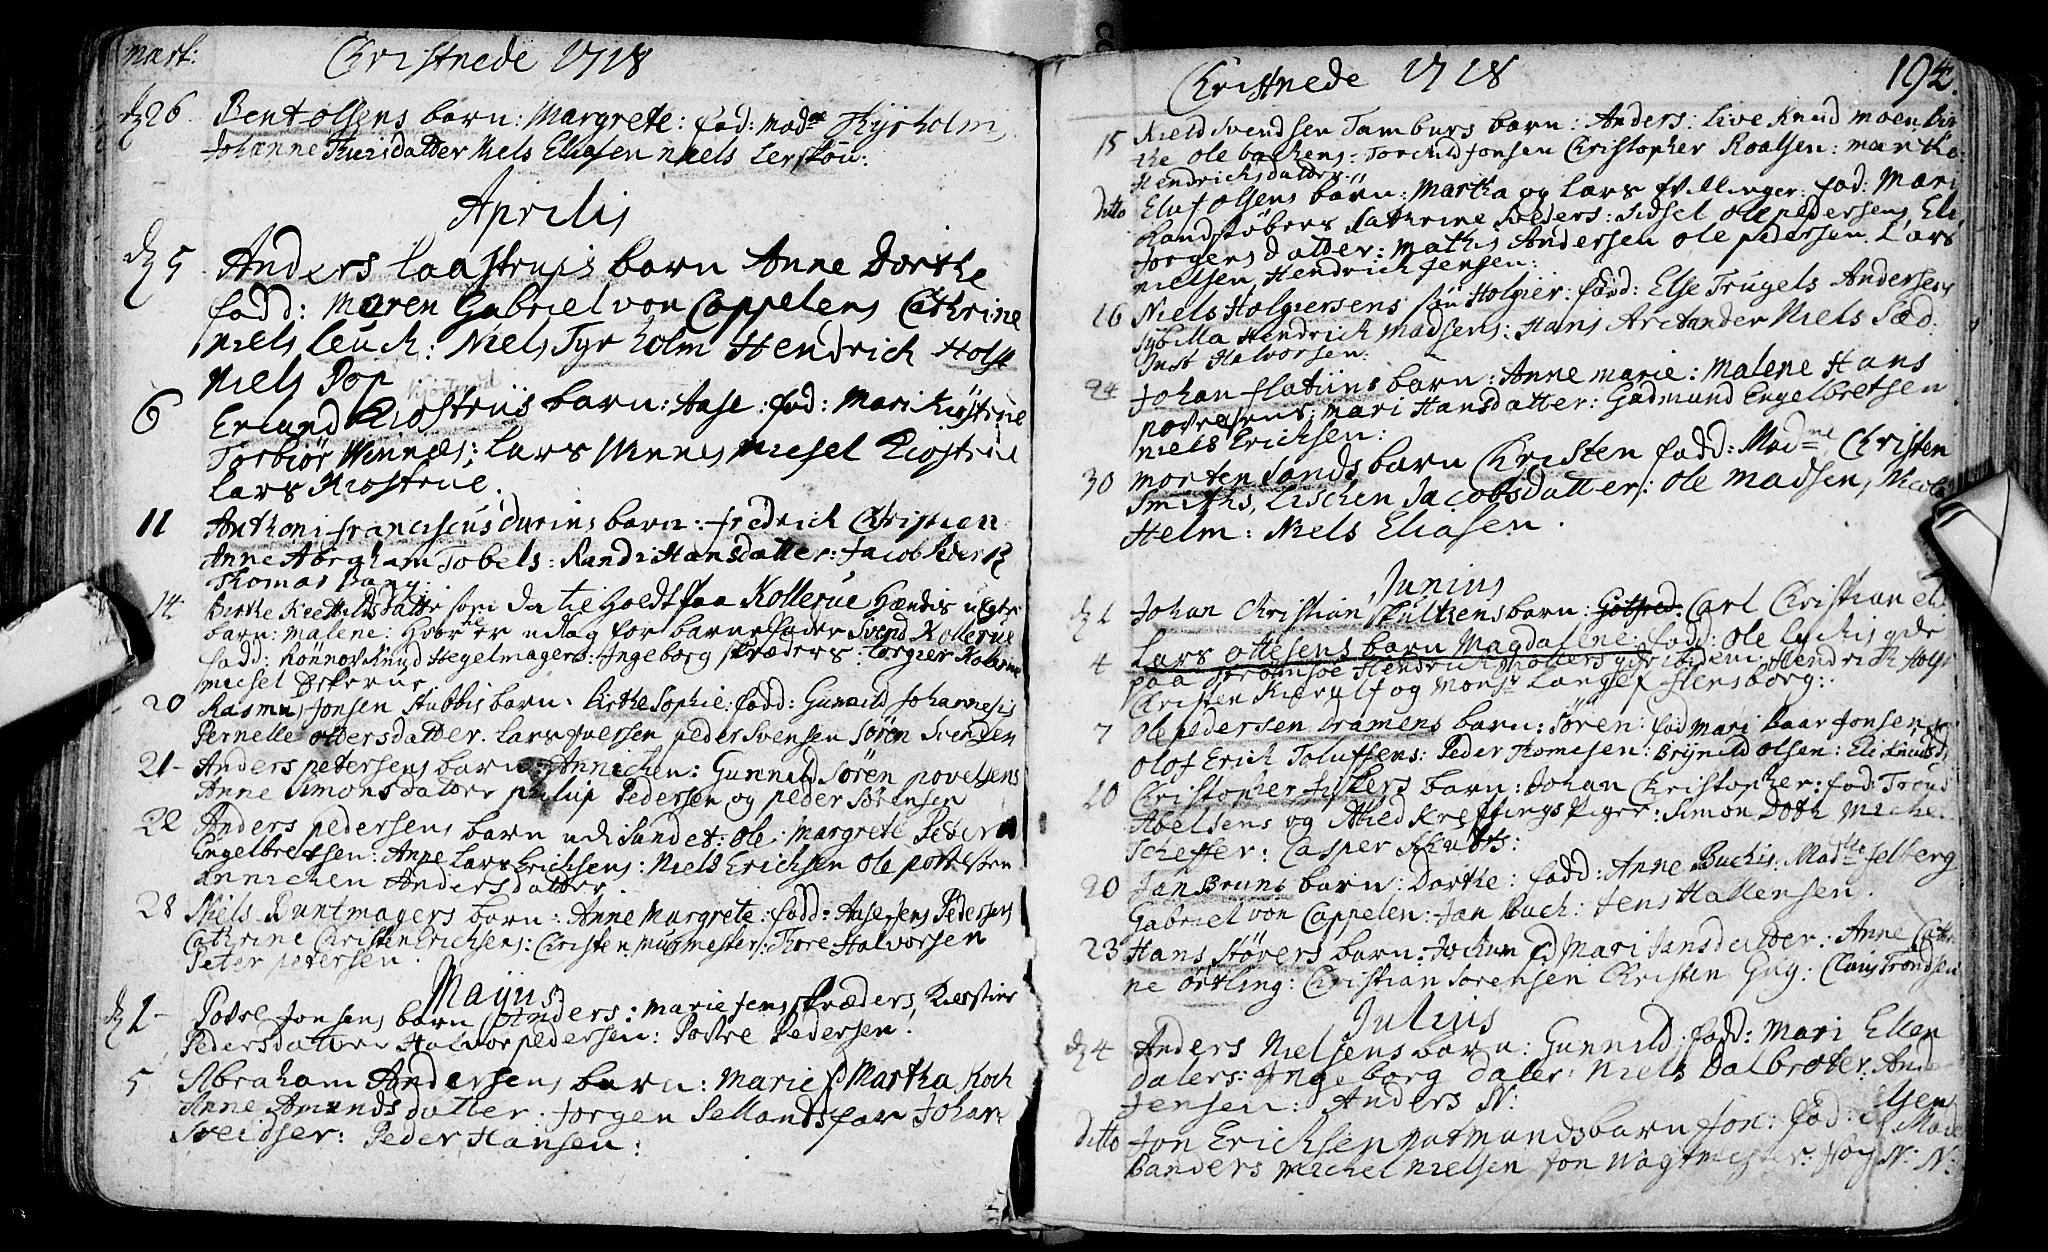 Mart: Christnede 1718
d 26 Bent olsens barn: Margrete: fad: Madme Thyrholm,
Johanne Thurisdatter Niels Eliasen Niels Lerskou:
Aprilis
d 5 Anders Laastrups barn Anne Dorthe
fadd: Maren Gabriel von Cappelens Cathrine
Niels Leuch: Niels Tyrholm Hendrich Holst
Niels Pop
6 Erland Kiostruis barn: Aase: fad: Mari Kiostrue
Torbiør Winnes: Lars Winnes Michel Kiostrue
Lars Kiostrue.
11 Anthoni franciscus durins barn: fredrich Christian
Anne Abraham Tobels: Randi Hansdatter: Jacob
Thomas Bang:
14 Birthe Kiettilsdatter som da tilholdt paa Kollerue Hændis
barn: Malene: Hvor er udlag for barnefader Svend Kollerue
fadd: Rønnov Knud Hegelmagers: Ingeborg skræders: Torgier Kollerue
Michel
20 Rasmus Jonsen Stubbis barn: Birthe Sophie: fadd: Gunnild Johannesis
Pernelle ottersdatter. Lars Iversen peder Svensen Søren Svensen
21 Anders petersens barn: Annichen: Gunnild Søren povelsens
Anne Simonsdatter philup Pedersen og peder Sørensen
22 Anders pedersens barn udi Sundet: ole: Margrete Peder
Engelbretsen: Anne Lars Erichsens: Niels Erichsen ole
Annichen Andersdatter.
28 Niels Buntmagers barn: Anne Margrete: fadd: Aase Jens Pedersens
Cathrine Christen Erichsens: Christen Murmester: Thore Halvorsen
Peter petersen.
Majus
d 1 Povre Jonsens barn Anders: Marie Jens skræders, Kierstine
Pedersdatter Halvor pedersen: Povre Pedersen.
5 Abraham Andersens barn: Marie f: Martha Koch
Anne Amundsdatter. Jørgen Sellandsfar Johan
Sveidser: Peder Hansen:
Christnede 1718 194.
15 Nield Svendsen Tamburs barn: Anders: Live Knud moen
the ole bachens: Torchild Jonsen Christopher Roalsen: martha
Hendrichsdatter.
ditto Eluf olsens barn: Martha og Lars tvillinger: fad: Mari
Randstøbers Cathrine Svesders: Sidsel ole pedersens, Eli,
Jorgensdatter: Mathis Andersen ole pedersen. Lars
Nielsen, Hendrich Jensen:
16 Niels Holgiersens søn Holgier: fadd: Else Trugels Andersens
Sybilla Hendrich Madsens: Hans Arctander Niels Sæd.
Just Halvorsen:
24 Johan flatuns barn: Anne marie: Malene Hans
povelsens: mari Hansdatter: Gudmund Engelbretsen
Niels Erichsen:
30 Morten Sands barn Christen fadd: Madme Christen
Smiths, Lischen Jacobsdatter: ole Madsen, Nicol
Helm: Niels Eliasen.
Junius
d 1 Johan Christian Skultzens barn: Gotfred Carl Christian
4 Lars ottesens barn Magdalene: fadd: ole Lychis
paa Hendrich Holst
Christen Kierulf og Monsr Langsef flensborg:
7 ole pedersen dramens barn: Søren: fad Mari baar Jonsen
Olof Erich Tolufsens: Peder Thomesen: Brynild olsen: Eli
10 Christopher fiskers barn: Johan Christopher: fad: Trond
Abelsens og Krefftings Piger: Simon Doth Michel
Scheffer: Casper Schults:
20 Jan Bruns barn: Dorthe: fadd: Anne Buchis. Madlle Selberg
Gabriel von Cappelen: Jan Buch: Jens Hallensen.
23 Hans Støvers barn: Jochum fd Mari Jansdatter: Anne Cathri
ne ørtling: Christian Sørensen Christen Gug: Claus Trondsen
Julius
d 4 Anders Nielsens barn: Gunnild: fadd: Mari Ellen
dalers: Ingeborg daler: Niels Dalbroter: And
Jensen: Anders N:
ditto Jon Erichsen barn Jon: fad: Elsen
Banders Michel Nielsen Jon Wagtmester: N: N: